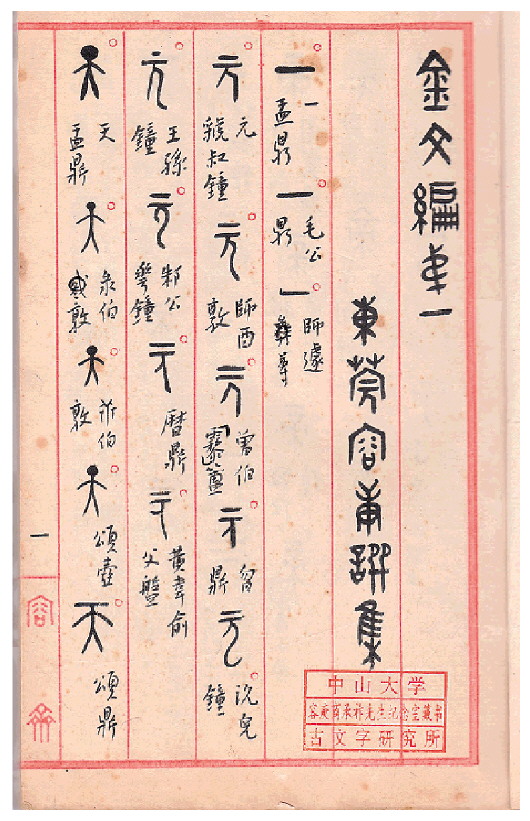 金文編第一
東莞容庚譔集
一 一 盂鼎 一 毛公鼎 一 師遽彝尊
元 元 虢叔鐘 元 師酉敦 元 曾伯霥簠 元 曶鼎 元 沇兒鐘
元 王孫鐘 元 邾公華鐘 元 曆鼎 元 黃韋俞父盤
天 天 盂鼎 天 彔伯𢦚敦 天 伯敦 天 頌壺 天 頌鼎
一
容
中山大学
容庚商承祚先生纪念室藏书
古文字研究所